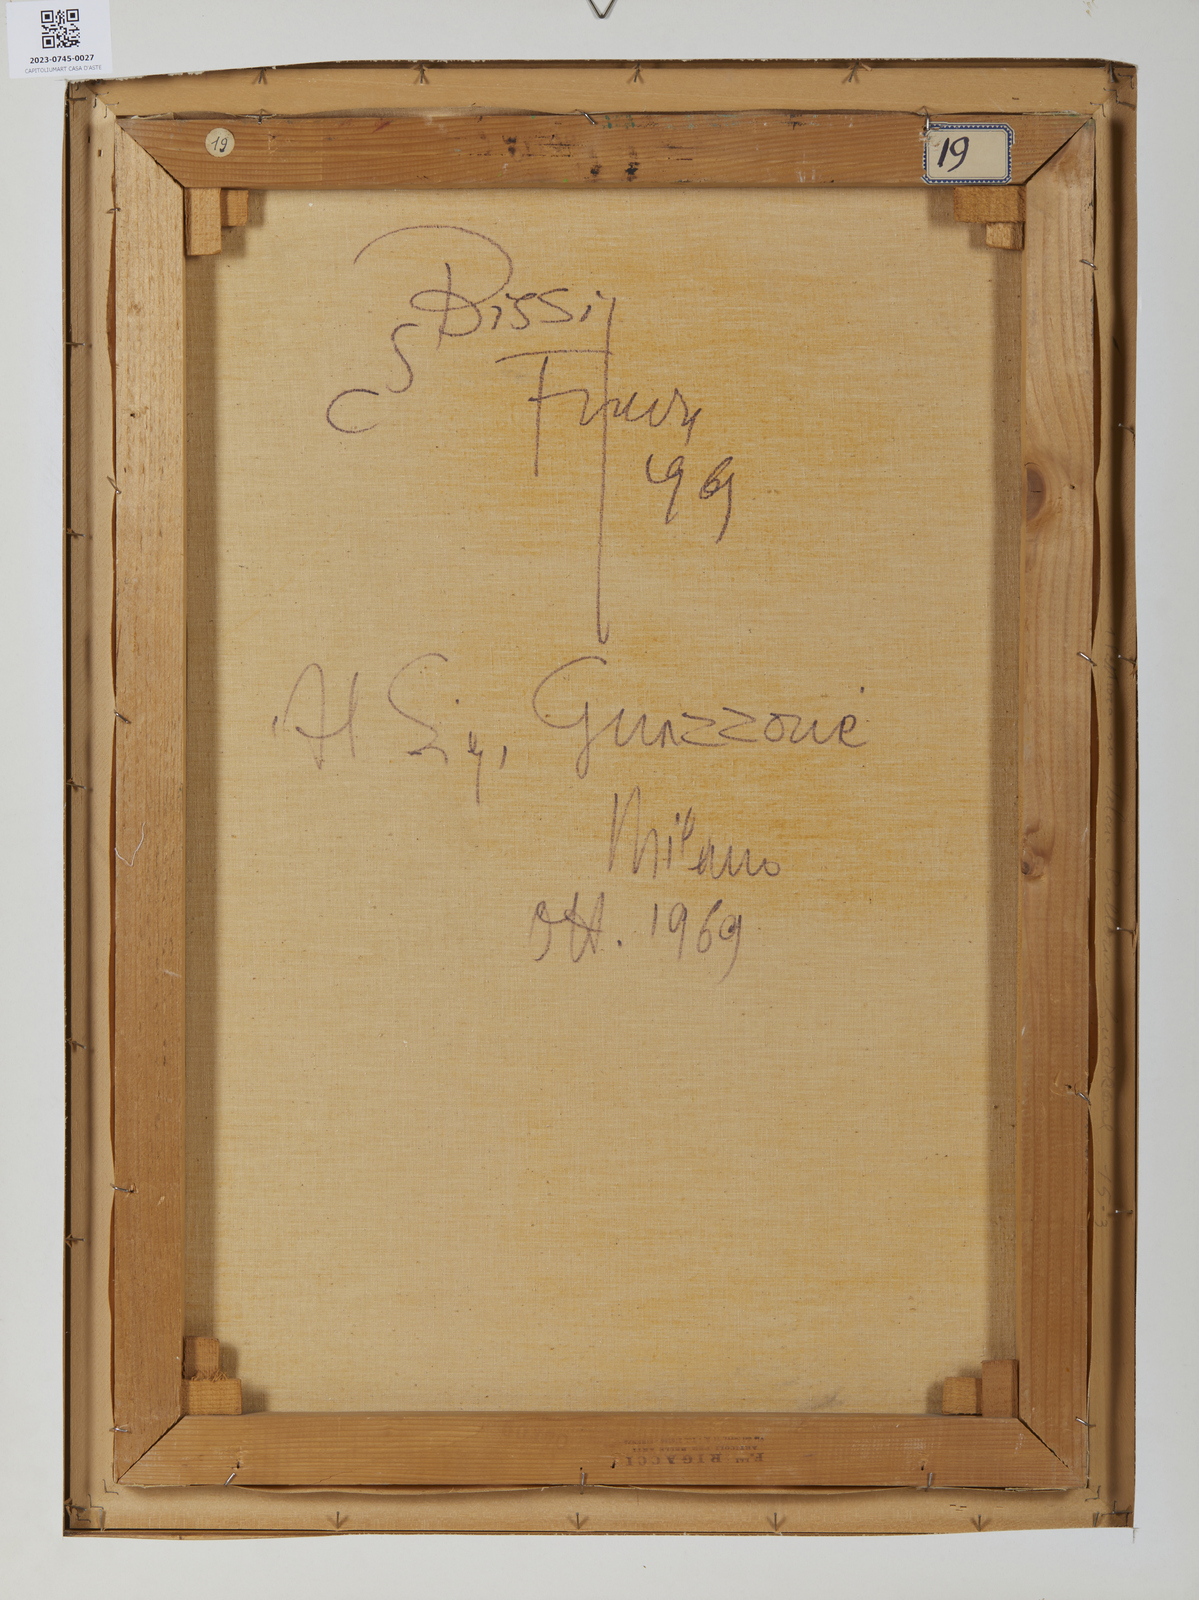 2023-0745-0027
CAPITOLIUMART CASA D'ASTE
19
19
S Bissi
1969
Al Sig. Guazzoni
Milano
ott. 1969
F.lli RIGACCI